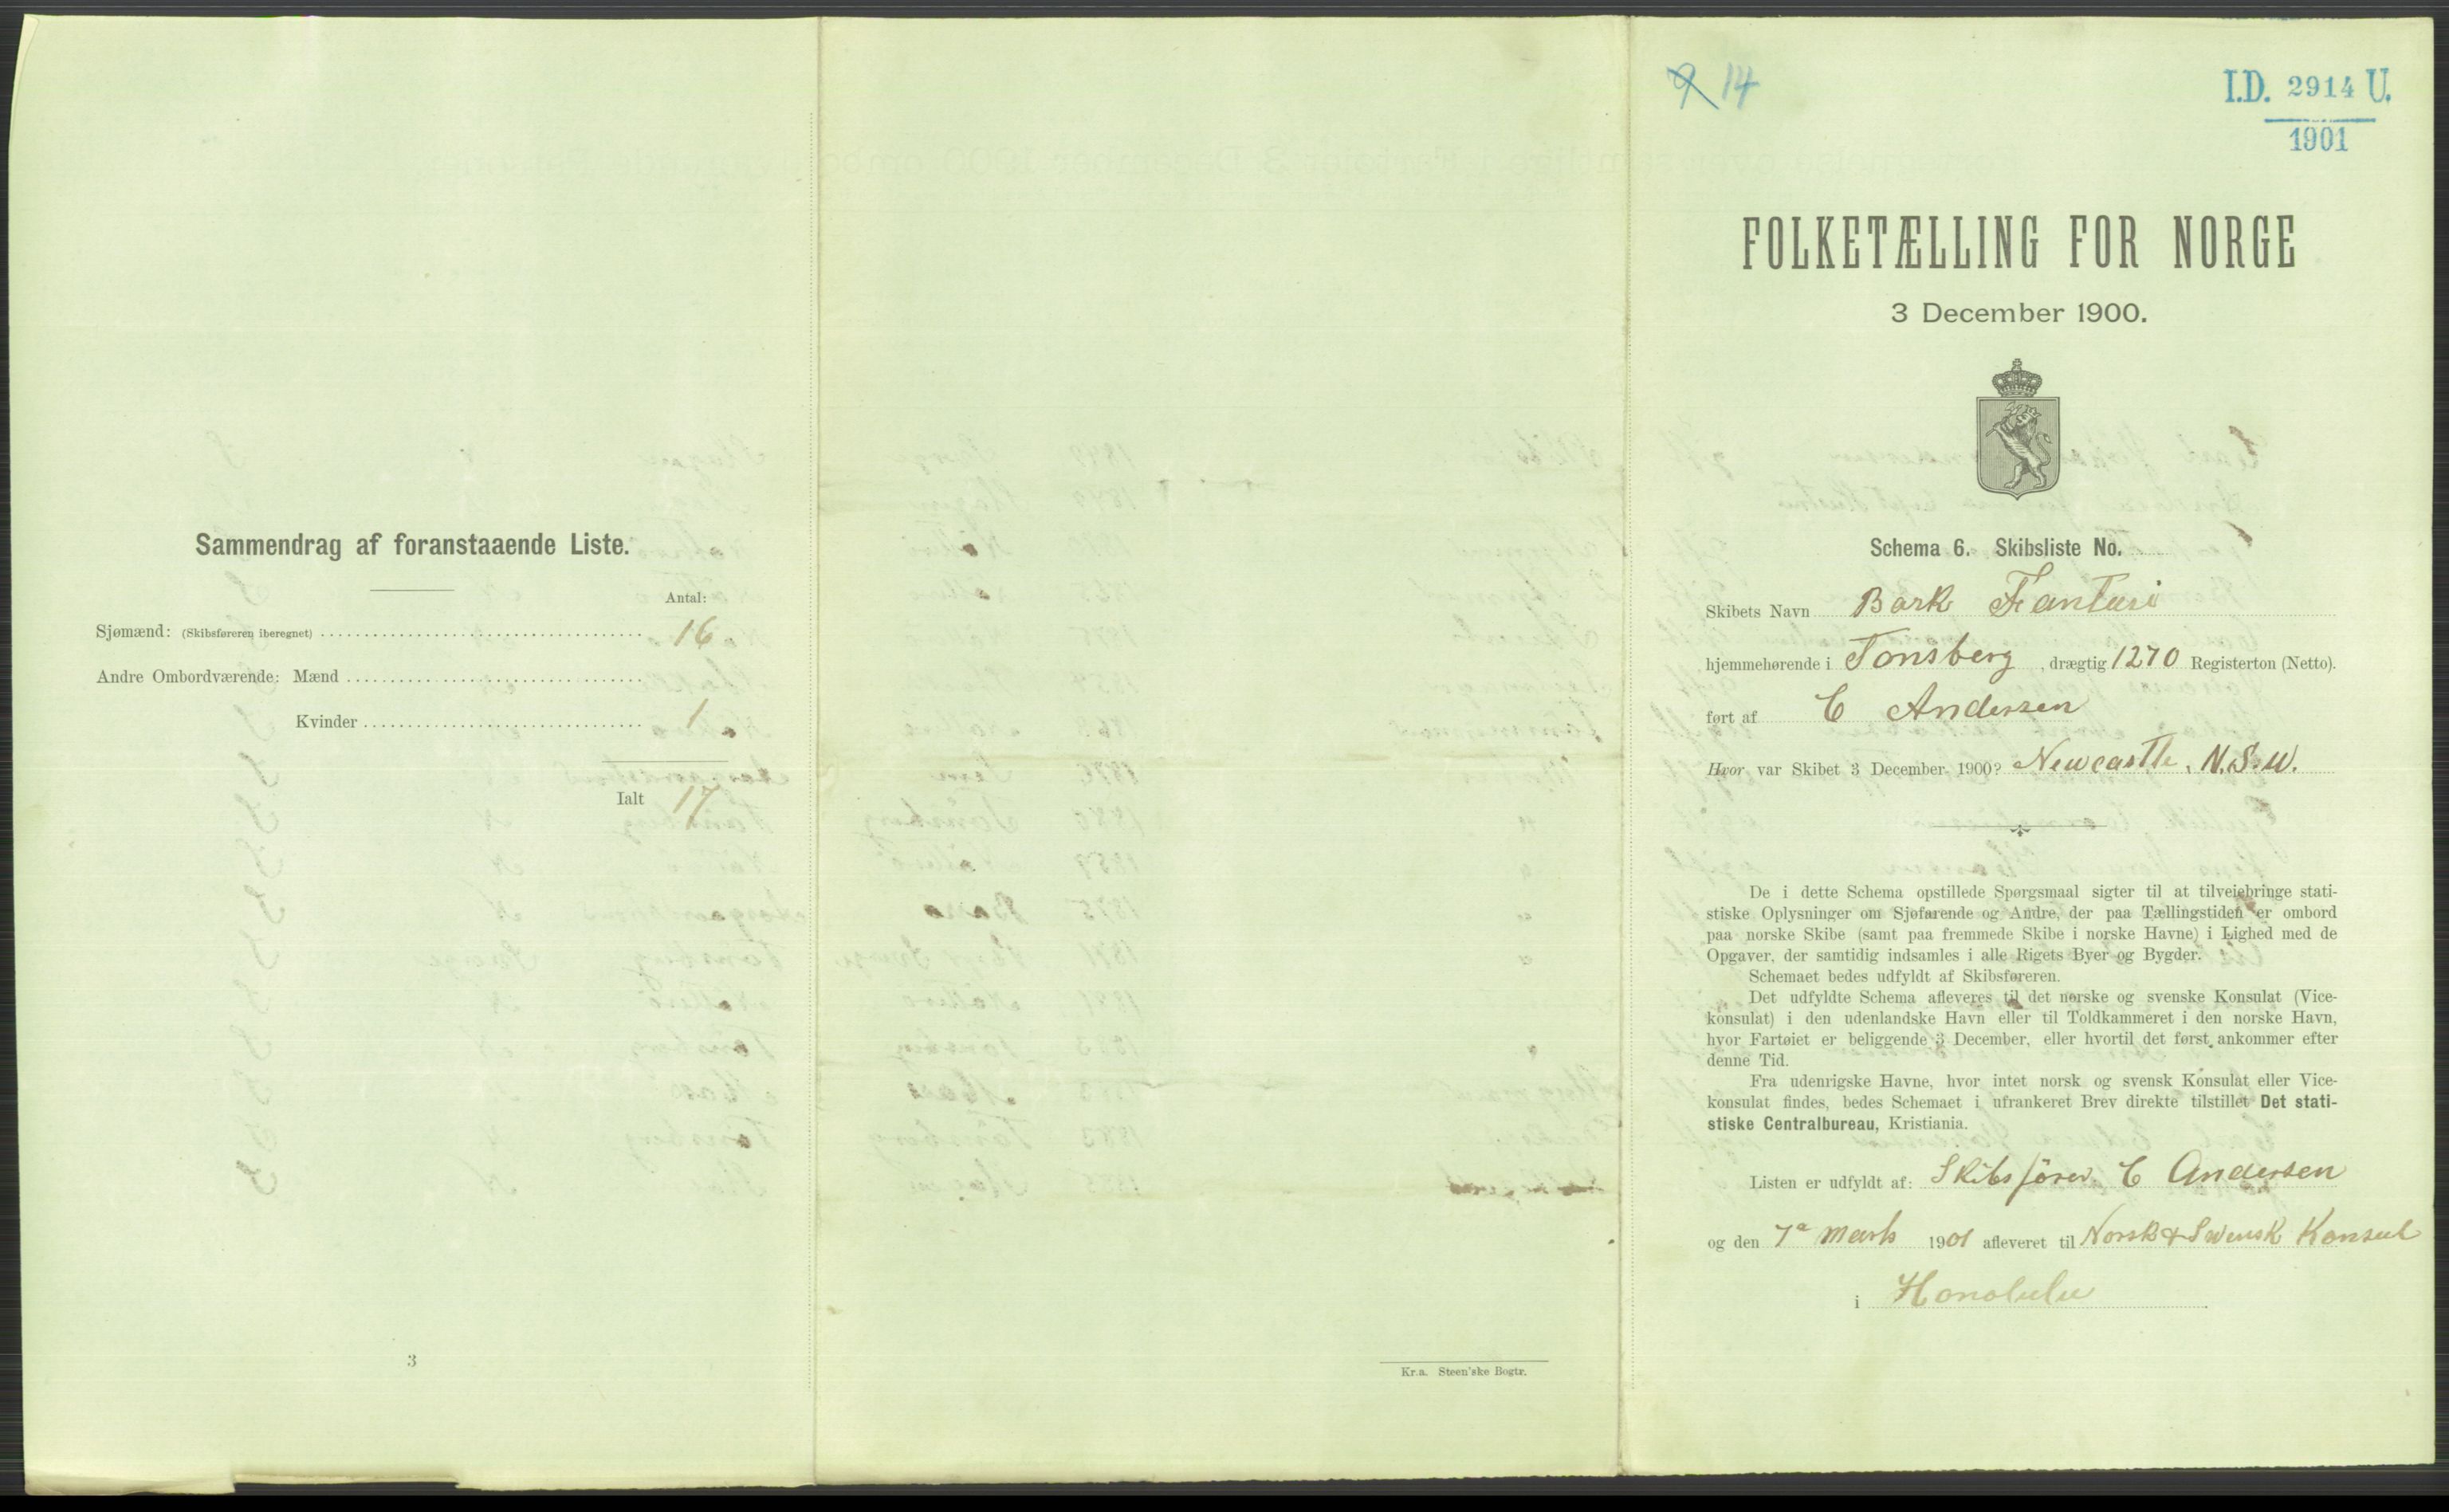 Sammendrag af foranstaaende Liste.
Antal:
Sjømænd: (Skibsføreren iberegnet) 16
Andre Ombordværende: Mænd
Kvinder 1
Ialt 17
3
Kr.a. Steen'ske Bogtr.
9 14
I.D. 2914 U.
1901
FOLKETÆLLING FOR NORGE
3 December 1900.
Schema 6. Skibsliste No.
Skibets Navn Bark Fantasi
hjemmehørende i Tønsberg, drægtig 1270 Registerton (Netto).
ført af C Andersen
Hvor var Skibet 3 December 1900? Newcastle, N.S.W.
De i dette Schema opstillede Spørgsmaal sigter til at tilveiebringe stati-
stiske Oplysninger om Sjøfarende og Andre, der paa Tællingstiden er ombord
paa norske Skibe (samt paa fremmede Skibe i norske Havne) i Lighed med de
Opgaver, der samtidig indsamles i alle Rigets Byer og Bygder.
Schemaet bedes udfyldt af Skibsføreren.
Det udfyldte Schema afleveres til det norske og svenske Konsulat (Vice-
konsulat) i den udenlandske Havn eller til Toldkammeret i den norske Havn,
hvor Fartøiet er beliggende 3 December, eller hvortil det først ankommer efter
denne Tid.
Fra udenrigske Havne, hvor intet norsk og svensk Konsulat eller Vice-
konsulat findes, bedes Schemaet i ufrankeret Brev direkte tilstillet Det stati-
stiske Centralbureau, Kristiania.
Listen er udfyldt af: Skibsfører C Andersen
og den 7de Marts 1901 afleveret til Norsk & Svensk Konsul
i Honolulu